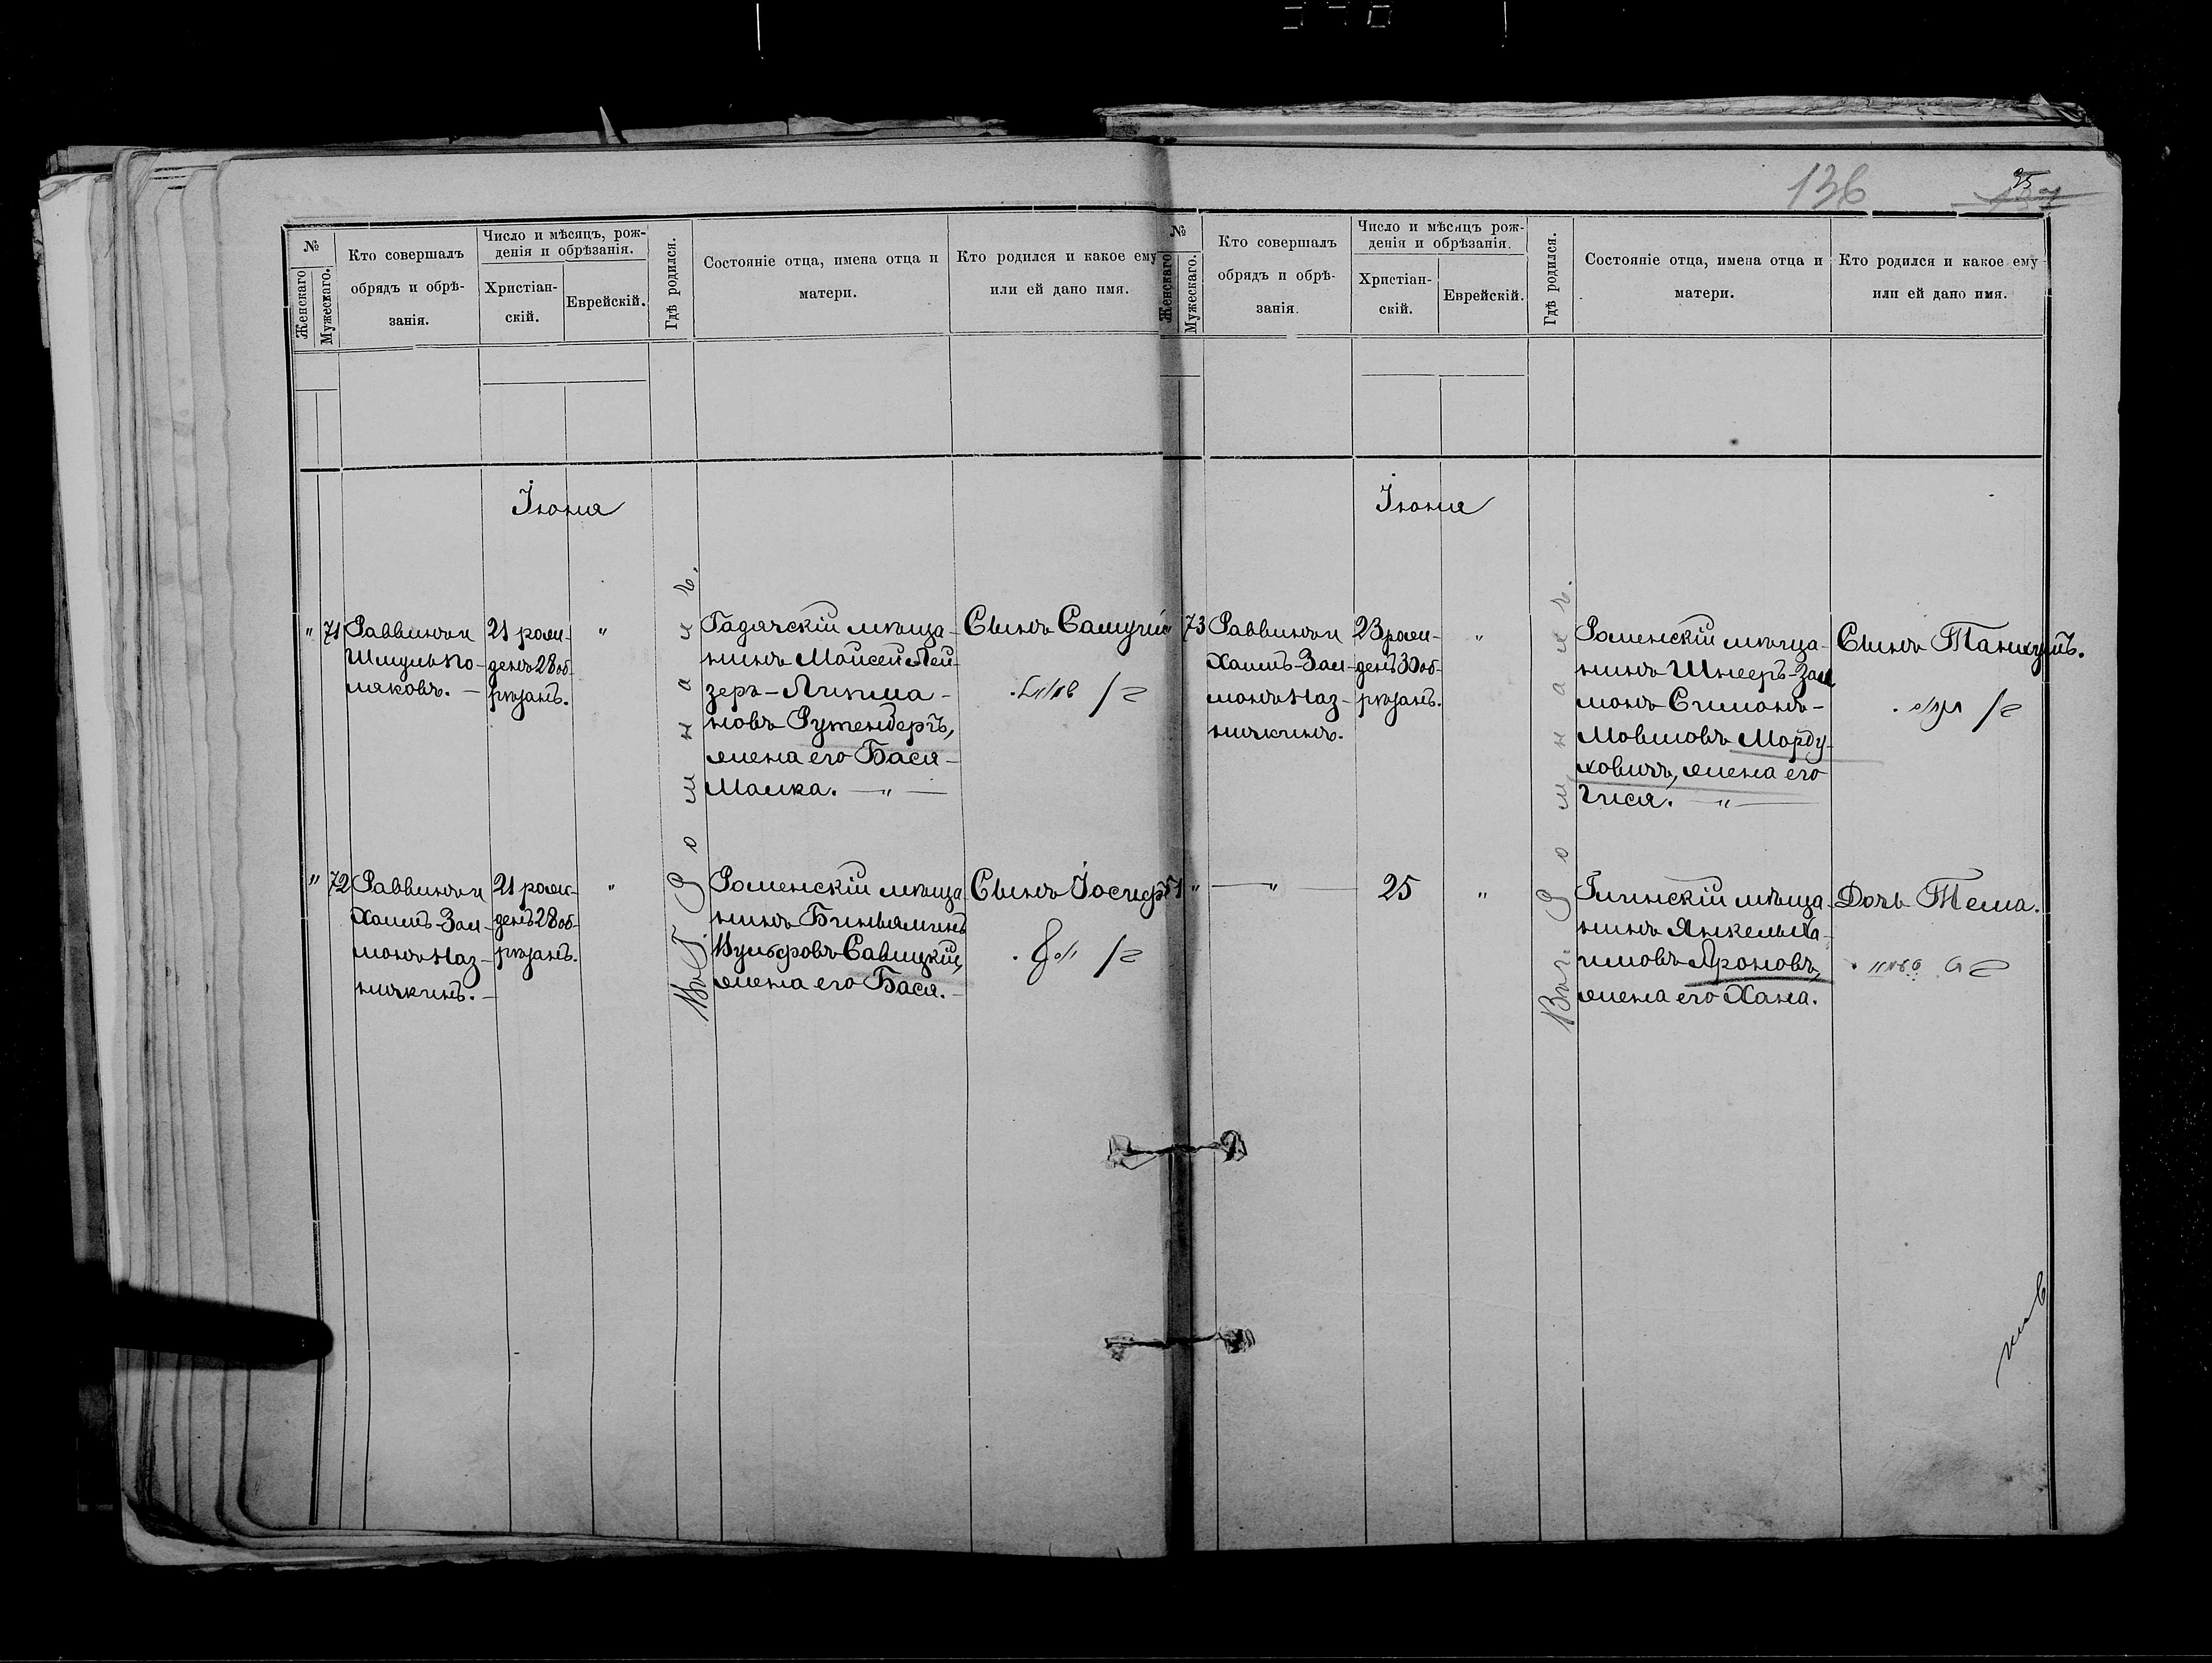 136
25
№
Женскаго
Мужескаго.
Кто совершалъ
обрядъ и обрѣ-
занія.
Число и мѣсяцъ, рож-
денія и обрѣзанія.
Христіан-
скій.
Еврейскій.
Гдѣ родился.
Состояніе отца, имена отца и
матери.
Кто родился и какое ему
или ей дано имя.
Іюня
" 71
Раввинъ и
Шмуль По-
ляковъ. —
21 рож-
денъ 28 об-
рѣзанъ.
"
Въ г. Ромнахъ.
Гадячскій мѣща-
нинъ Мойсей Лей-
зеръ-Липма-
новъ Рутенбергъ,
жена его Бася-
Малка. — " —
Сынъ Самуилъ
" 72
Раввинъ и
Хаимъ-Зал-
монъ Наз-
нычкинъ. —
21 рож-
денъ 28 об-
рѣзанъ.
"
Роменскій мѣща-
нинъ Биньяминъ
Вульфовъ Савицкій,
жена его Бася. —
Сынъ Іосифъ
№
Женскаго
Мужескаго.
Кто совершалъ
обрядъ и обрѣ-
занія.
Число и мѣсяцъ рож-
денія и обрѣзанія.
Христіан-
скій.
Еврейскій.
Гдѣ родился.
Состояніе отца, имена отца и
матери.
Кто родился и какое ему
или ей дано имя.
Іюня
" 73
Раввинъ и
Хаимъ-Зал-
монъ Наз-
нычкинъ.
23 рож-
денъ 30 об-
рѣзанъ.
"
Въ г. Ромнахъ.
Роменскій мѣща-
нинъ Шнееръ-Зал
монъ Симонъ-
Мовшовъ Морду-
ховичъ, жена его
Гися. — " —
Сынъ Танхумъ.
51 "
— " —
25
"
Глинскій мѣща-
нинъ Янкель Ха-
имовъ Ароновъ,
жена его Хана.
Дочь Тема.